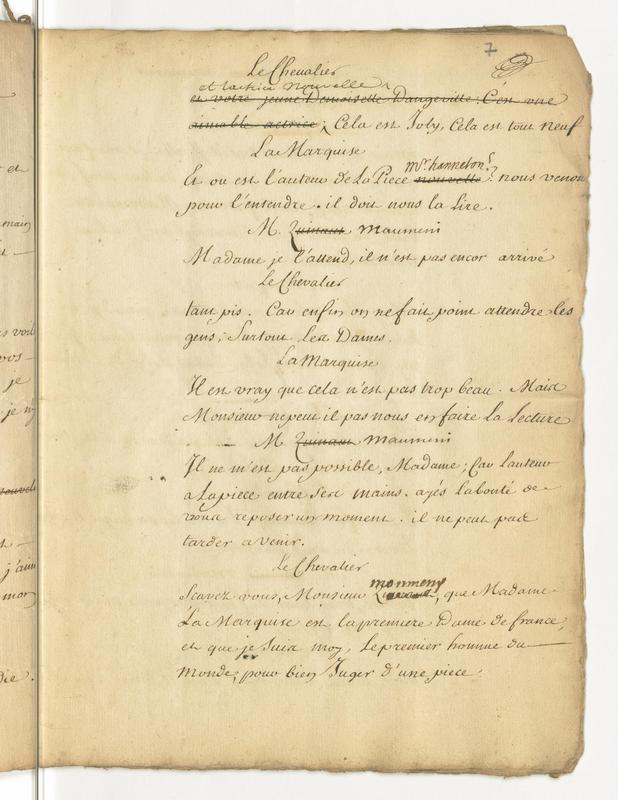 7
Le Chevalier
et lactrice nouvelle
et votre jeune Demoiselle Dangeville; C'est une
aimable actrice; Cela est Joly, Cela est tout neuf
La Marquise
mr. hanneton?
Et ou est l'auteur de La Piece nouvelle? nous venons
pour l'entendre. il doit nous la Lire.
M. maumeni
Madame je l'attend, il n'est pas encor arrivé
Le Chevalier
tant pis. Car enfin on ne fait point attendre les
gens, Surtout Les Dames.
La Marquise
Il est vray que cela n'est pas trop beau. Mais
Monsieur ne peut il pas nous en faire la Lecture
M. maumeni
Il ne m'est pas possible, Madame; Car lauteur
a La piece entre ses mains. ayés la bonté de
vous reposer un moment. il ne peut pas
tarder a venir.
Le Chevalier
monmeny
Scavez vous, Monsieur, que Madame
La Marquise est la premiere Dame de france,
et que je suis moy, Le premier homme du
monde, pour bien Juger d'une piece.
et
je
je n'y
j'aim